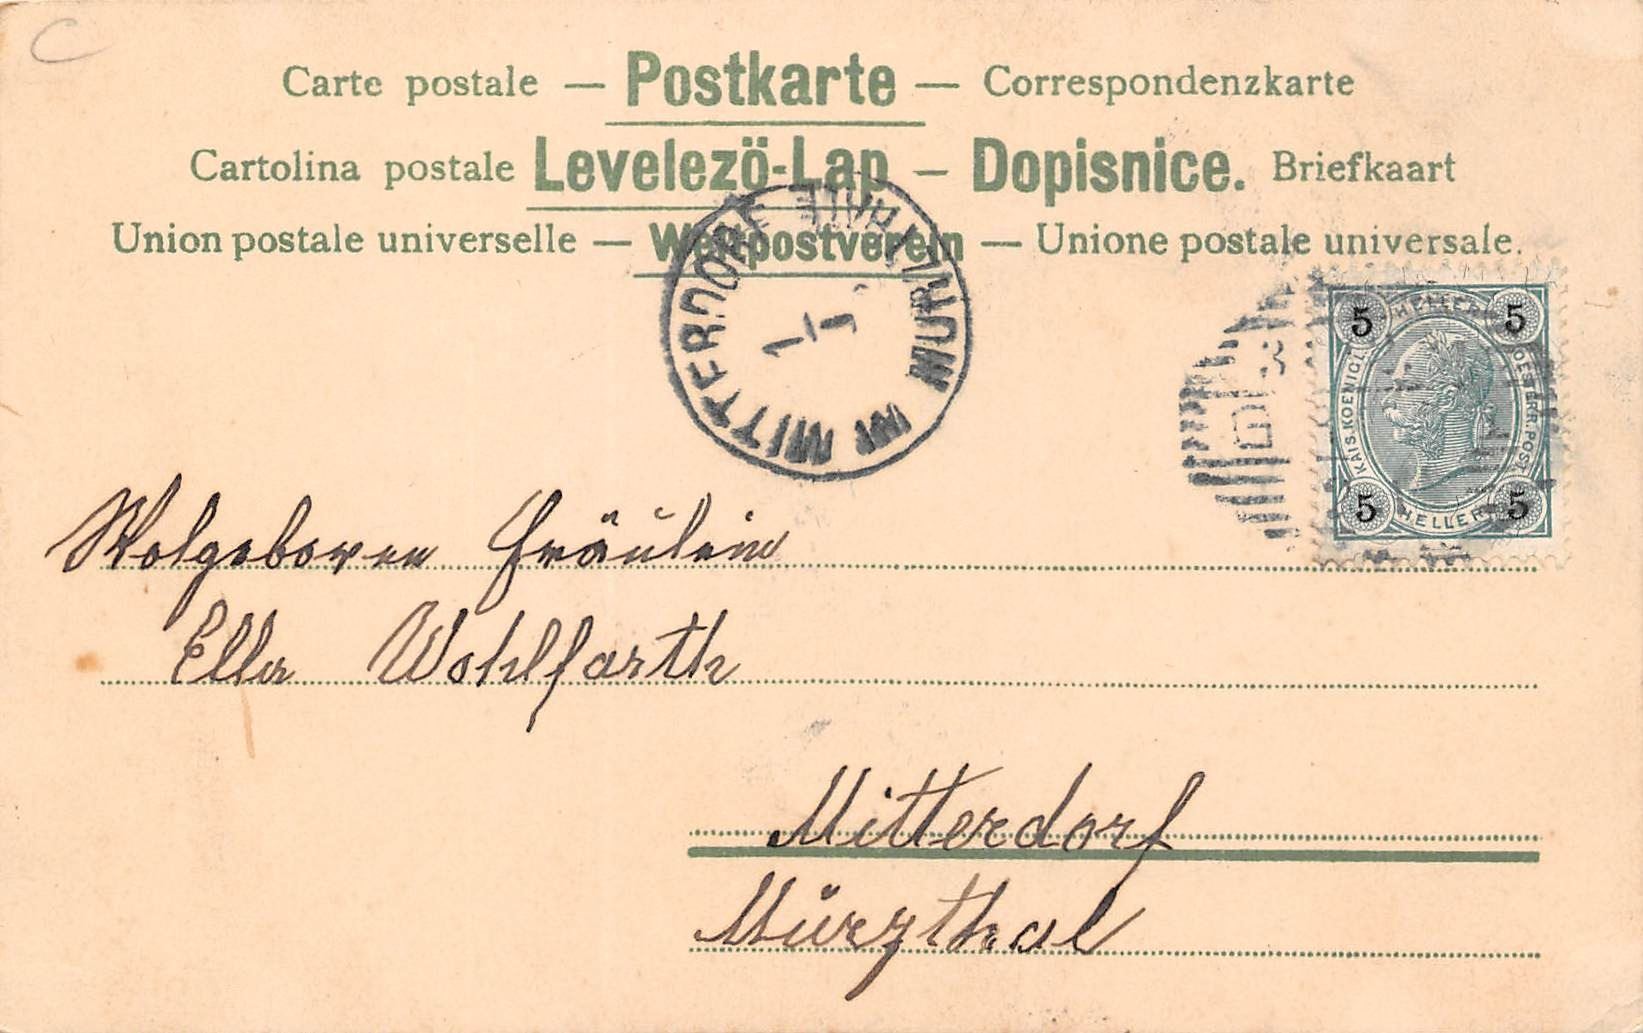 C
Carte postale — Postkarte — Correspondenzkarte
Cartolina postale Levelező-Lap — Dopisnice. Briefkaart
Union postale universelle — Weltpostverein — Unione postale universale.
MITTERDORF IM MÜRZTHALE
1/1
5 HELLER 5
KAIS. KOENIGL. OESTERR. POST
5 HELLER 5
Wolgeboren Fräulein
Ella Wohlfarth
Mitterdorf
Mürzthal